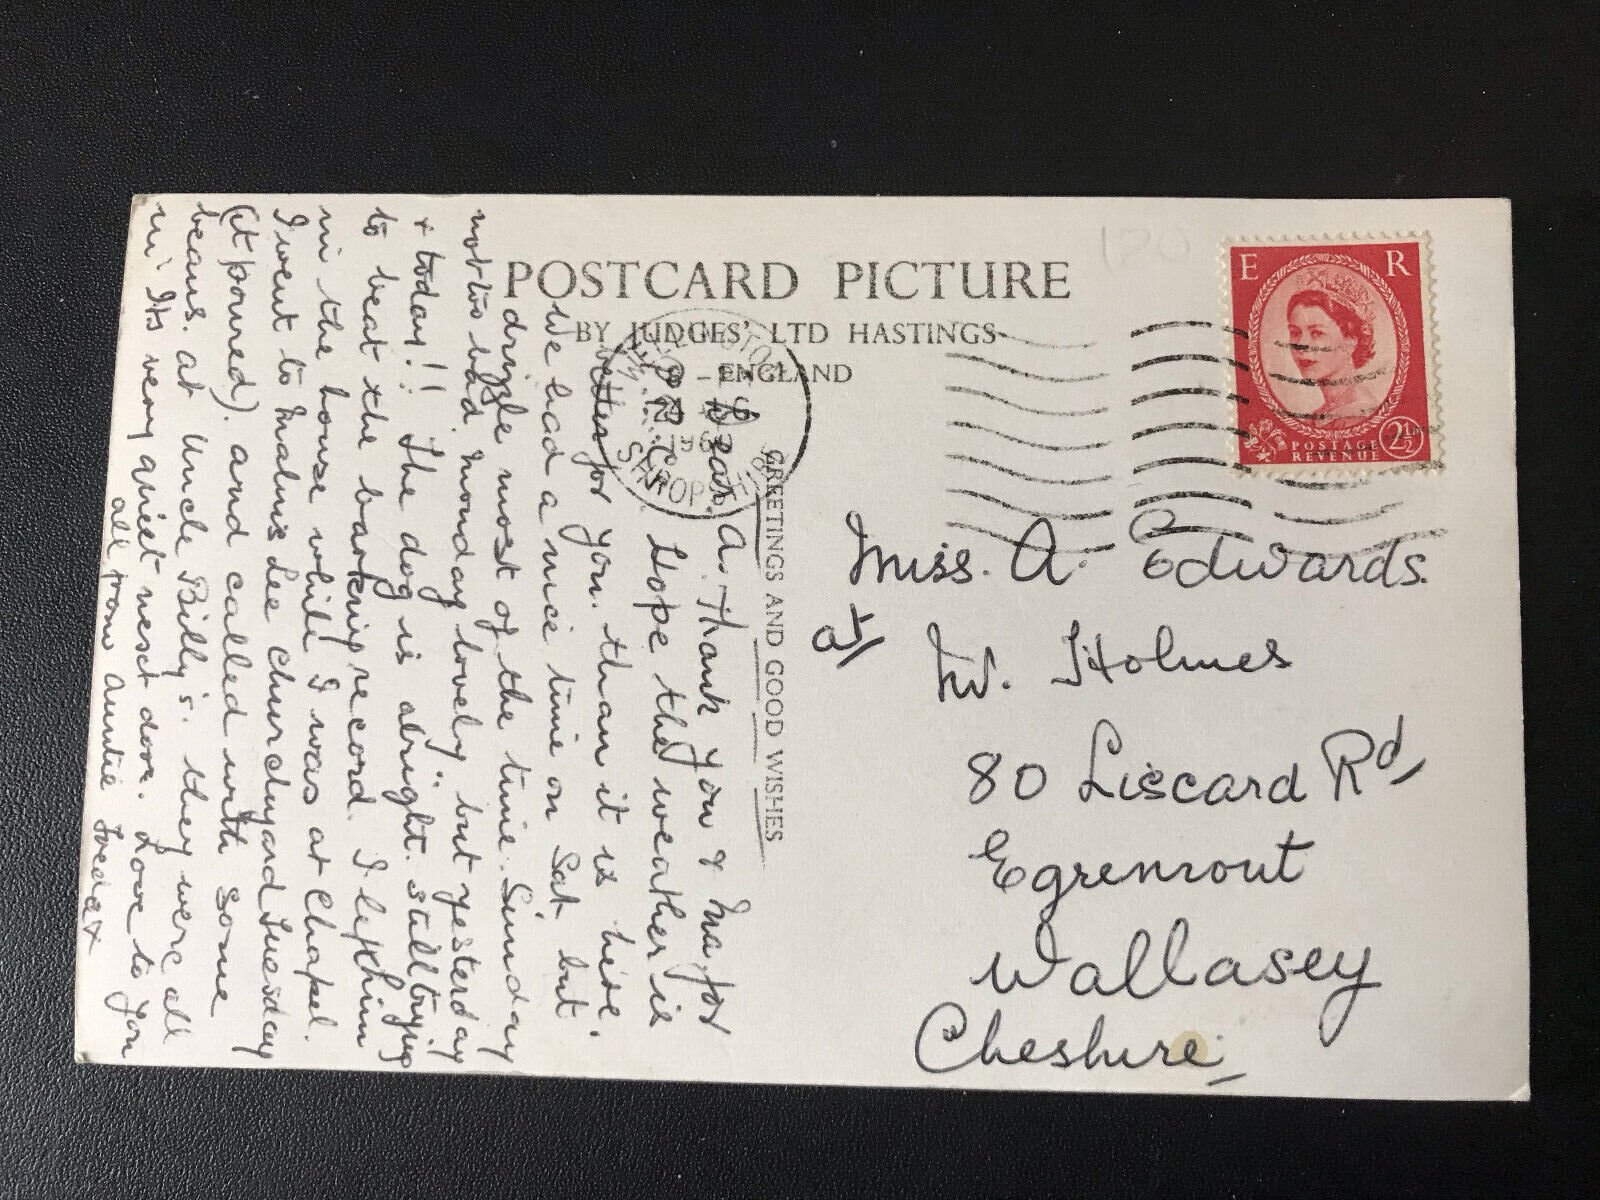 POSTCARD PICTURE
BY JUDGES' LTD HASTINGS
ENGLAND
GREETINGS AND GOOD WISHES
E R
POSTAGE
REVENUE
2½D
SHROPSHIRE
Dear A. Thank you & Ma for
P.C. Hope the weather is
better for you. than it is here.
We had a nice time on Sat but
drizzle most of the time. Sunday
not too bad. Monday lovely but yesterday
& today!! The dog is alright. still trying
to beat the barking record. I left him
in the house while I was at Chapel.
I went to Malins Lee churchyard Tuesday
(it poured). and called with some
beans. at Uncle Billy's. they were all
in. Its very quiet next door. Love to you
all from Auntie
Miss. A. Edwards.
at/
W. Holmes
80 Liscard Rd,
Egremont
Wallasey
Cheshire,